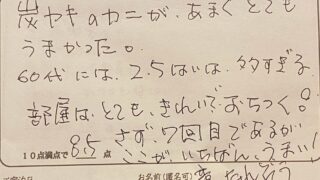 炭ヤキのカニが、あまくとても
うまかった。
60代には、2.5はいは、多すぎる
部屋は、とても、きれいでおちつく。
さず、7回目であるが
10点満点で 8.5 点
ここが、いちばん、うまい!
お名前(匿名可)